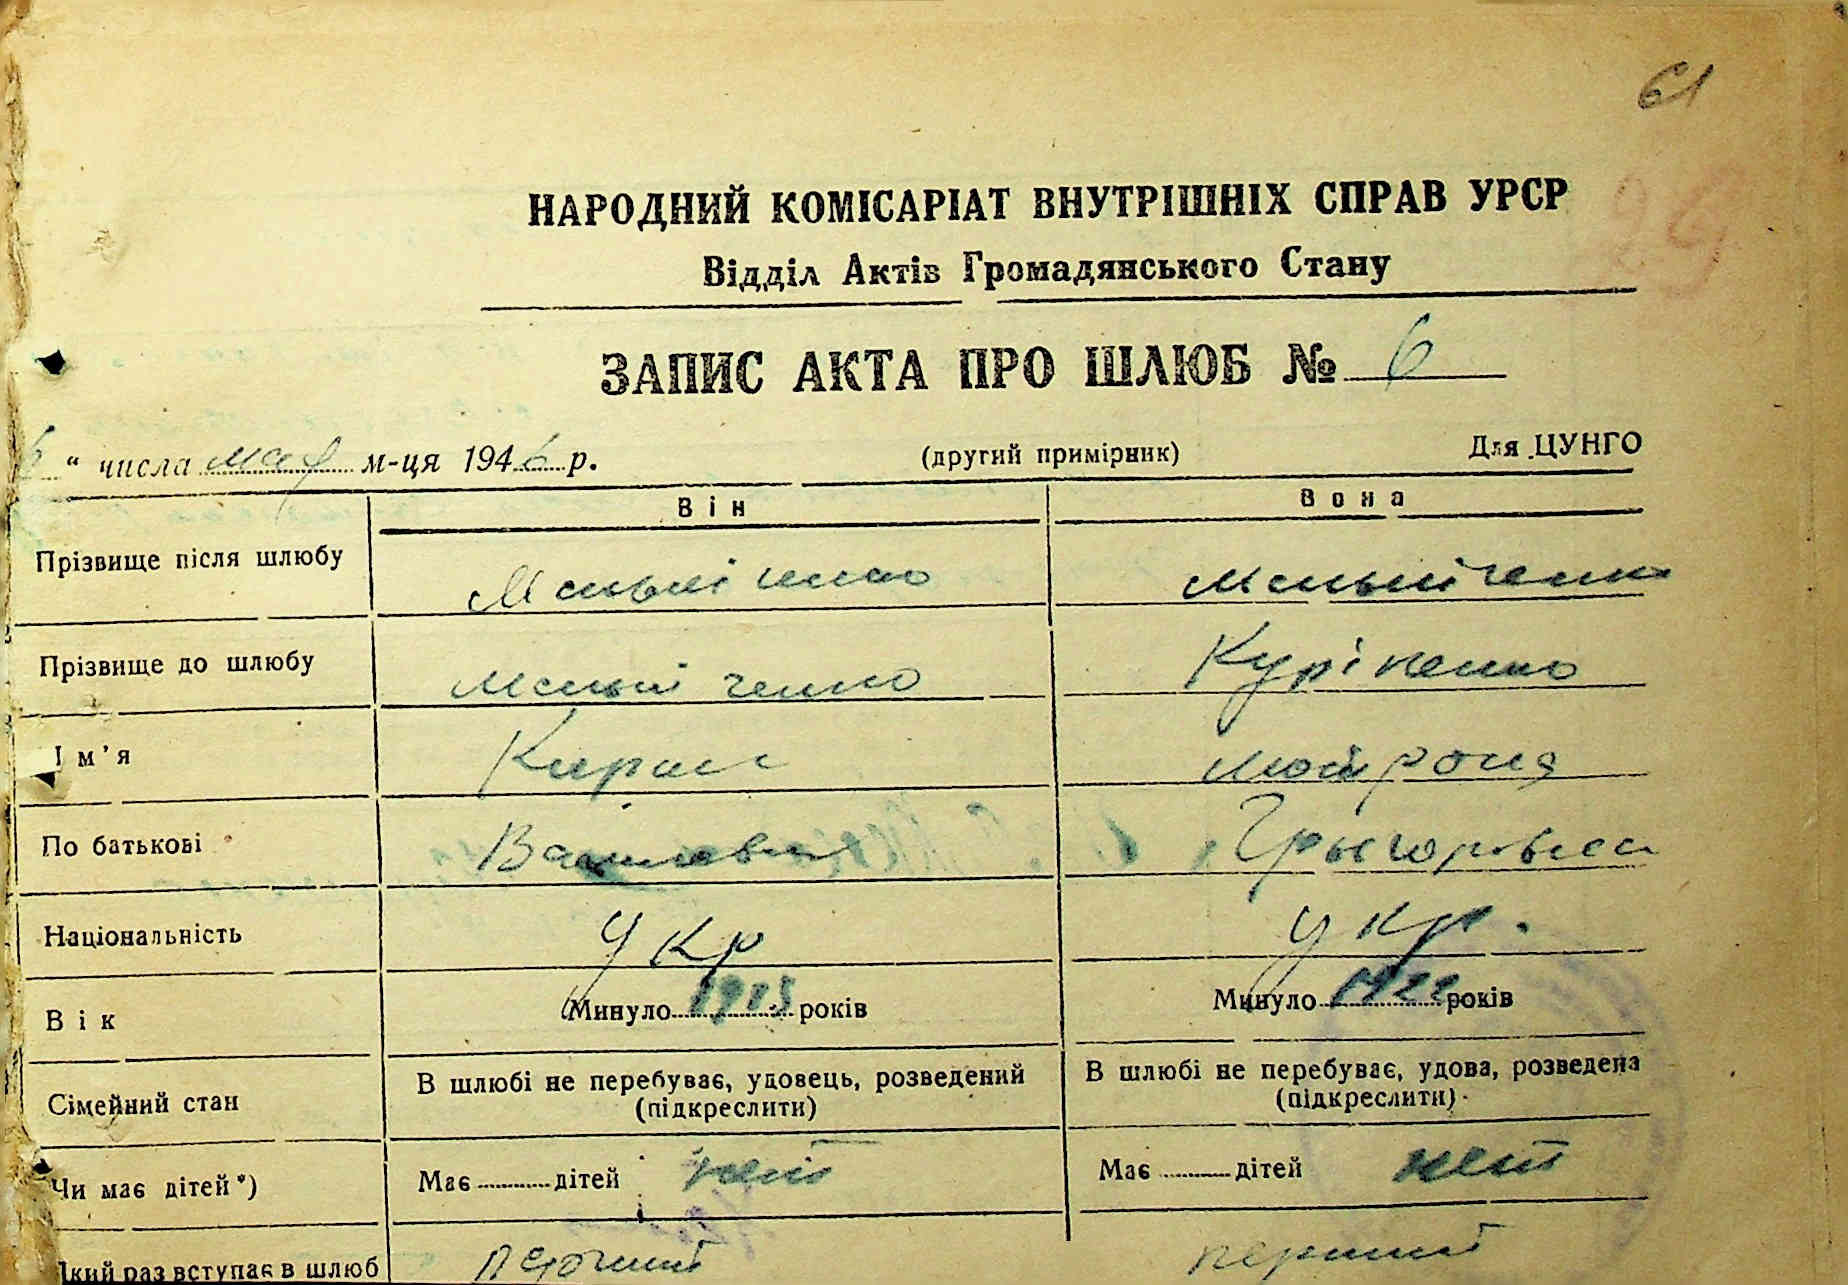 61
НАРОДНИЙ КОМІСАРІАТ ВНУТРІШНІХ СПРАВ УРСР
Відділ Актів Громадянського Стану
ЗАПИС АКТА ПРО ШЛЮБ № 6
" числа мая м-ця 1946 р. (другий примірник) Для ЦУНГО
Він Вона
Прізвище після шлюбу
Прізвище до шлюбу Куріненко
Ім'я
По батькові Григоровна
Національність Укр Укр.
Вік Минуло 1913 років Минуло 1922 років
Сімейний стан В шлюбі не перебуває, удовець, розведений В шлюбі не перебуває, удова, розведена
(підкреслити) (підкреслити)
Чи має дітей*) Має дітей нет Має дітей нет
Який раз вступає в шлюб перший перший